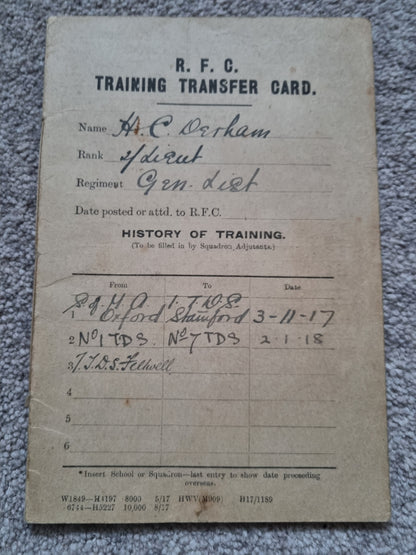 R. F. C.
TRAINING TRANSFER CARD.
Name H. C. Derham
Rank 2/Lieut
Regiment Gen. List
Date posted or attd. to R.F.C.
HISTORY OF TRAINING.
(To be filled in by Squadron Adjutants.)
From To Date
S of M. A. 1. T.D.S.
1 Oxford Stamford 3-11-17
2 No 1 TDS No 7 TDS 2.1.18
3 7.T.D.S. Feltwell
4
5
6
*Insert School or Squadron—last entry to show date proceeding
overseas.
W1849—H4197 8000 5/17 HWV(M909) H17/1189
6744—H5227 10,000 8/17